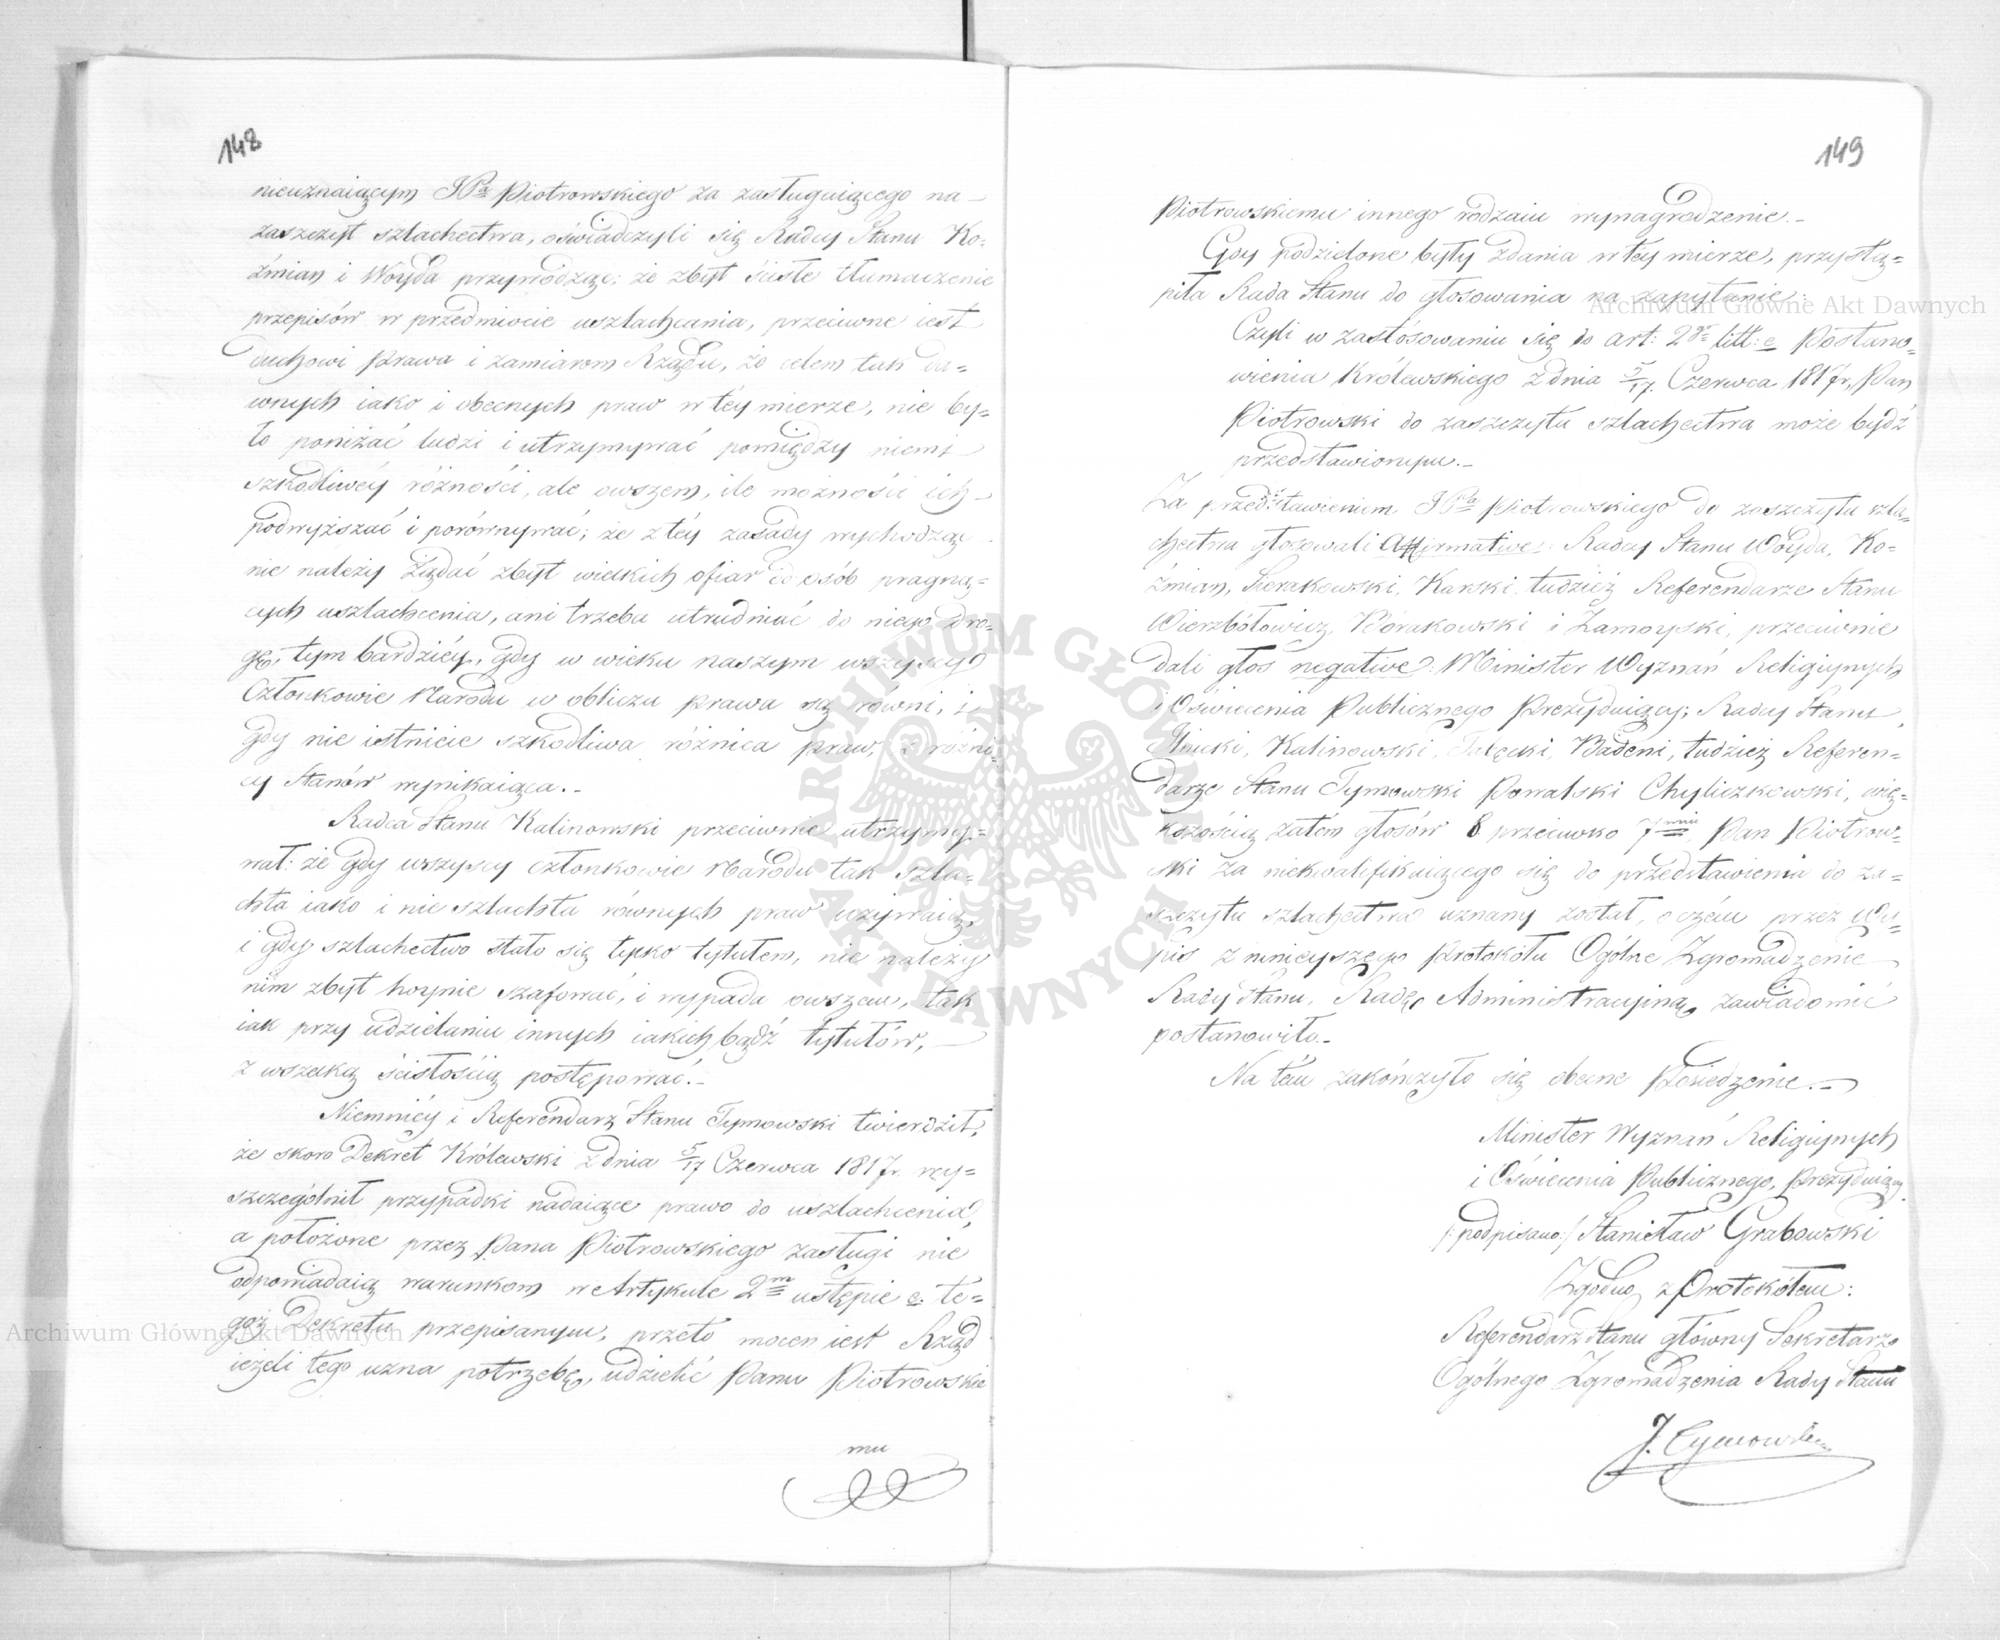 148
nieuznaiącym JPa Piotrowskiego za zasługuiącego na
zaszczyt szlachectwa, oświadczyli się Radcy Stanu Ko=
źmian i Woyda przywodząc: że zbyt ścisłe tłumaczenie
przepisów w przedmiocie uszlachcania, przeciwne iest
duchowi Prawa i zamiarom Rządu, że celem tak da=
wnych iako i obecnych praw w téy mierze, nie by=
ło poniżać ludzi i utrzymywać pomiędzy niemi
szkodliwéy różności, ale owszem, ile możności ich
podwyższać i porównywać; że z téy zasady wychodząc
nie należy żądać zbyt wielkich ofiar do osób pragną=
cych uszlachcenia, ani trzeba utrudniać do niego dro=
gę, tym bardziéy, gdy w wieku naszym wszyscy
Członkowie Narodu w obliczu prawa są równi, i
gdy nie istnieie szkodliwa różnica praw, z różni=
cy Stanów wynikaiąca.-
Radca Stanu Kalinowski przeciwnie utrzymy=
wał: że gdy wszyscy członkowie Narodu tak szla=
chta iako i nie szlachta równych praw używaią,
i gdy szlachectwo stało się tylko tytułem, nie należy
nim zbyt hoynie szafować, i wypada owszem, tak
iak przy udzielaniu innych iakich bądź tytułów,
z wszelką ścisłością postępować.-
Niemniéy i Referendarz Stanu Tymowski twierdził,
że skoro Dekret Królewski z dnia 5/17 Czerwca 1817 r. wy=
szczególnił przypadki nadaiące prawo do uszlachcenia,
a położone przez Pana Piotrowskiego zasługi nie
odpowiadaią warunkom w Artykule 2m ustępie e: te=
goż Dekretu przepisanym, przeto mocen iest Rząd
ieżeli tego uzna potrzebę, udzielić Panu Piotrowskie
mu
149
Piotrowskiemu innego rodzaiu wynagrodzenie.-
Gdy podzielone były zdania w téy mierze, przystą=
piła Rada Stanu do głosowania na zapytanie:
Czyli w zastosowaniu się do art: 2go litt: e Postano=
wienia Królewskiego z dnia 5/17 Czerwca 1817 r, Pan
Piotrowski do zaszczytu szlachectwa może bydź
przedstawionym.-
Za przedstawieniem JPa Piotrowskiego do zaszczytu szla=
chectwa głosowali Affirmative: Radcy Stanu Woyda, Ko=
źmian, Sierakowski, Karski, tudzież Referendarze Stanu
Wierzbołowicz, Borakowski i Zamoyski, przeciwnie
dali głos negative: Minister Wyznań Religiynych
i Oświecenia Publicznego Prezyduiący; Radcy Stanu
Kalinowski, Badeni, tudzież Referen=
darze Stanu Tymowski Powalski Chyliczkowski, więk=
kszością zatém głosów 8 przeciwko 7miu Pan Piotrow=
ski za niekwalifikuiącego się do przedstawienia do za=
szczytu szlachectwa uznany został, o czém przez Wy=
pis z ninieyszego Protokółu Ogólne Zgromadzenie
Rady Stanu, Radę Administracyiną zawiadomić
postanowiło.-
Na tém zakończyło się obecne Posiedzenie.-
Minister Wyznań Religiynych
i Oświecenia Publicznego, Prezyduiący
/:podpisano:/ Stanisław Grabowski
Zgodno z Protokółem:
Referendarz Stanu główny Sekretarz
Ogólnego Zgromadzenia Rady Stanu
J. Tymowski
Archiwum Główne Akt Dawnych
Archiwum Główne Akt Dawnych
ARCHIWUM GŁÓWNE AKT DAWNYCH